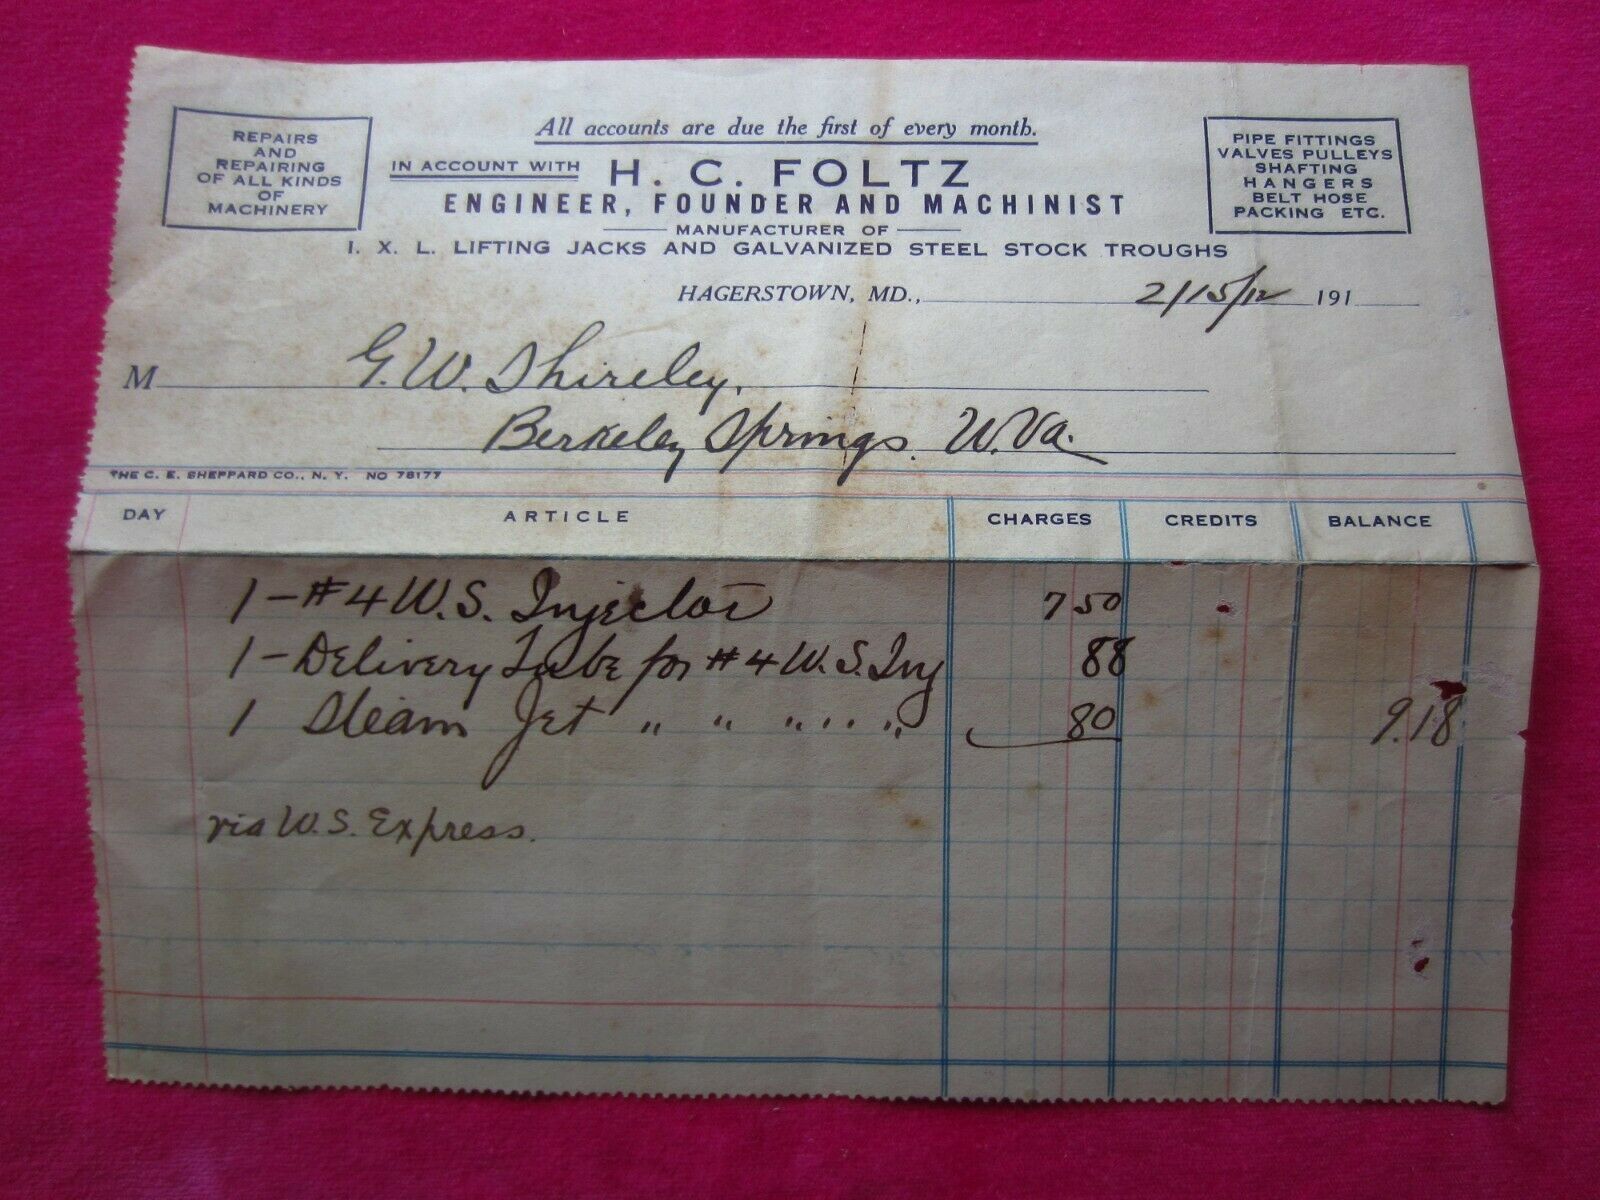 REPAIRS
AND
REPAIRING
OF ALL KINDS
OF
MACHINERY
All accounts are due the first of every month.
IN ACCOUNT WITH H. C. FOLTZ
ENGINEER, FOUNDER AND MACHINIST
MANUFACTURER OF
I. X. L. LIFTING JACKS AND GALVANIZED STEEL STOCK TROUGHS
PIPE FITTINGS
VALVES PULLEYS
SHAFTING
HANGERS
BELT HOSE
PACKING ETC.
HAGERSTOWN, MD., 2/15/12 191
M G. W. Shireley,
Berkeley Springs. W. Va.
THE C. E. SHEPPARD CO., N. Y. NO 78177
DAY ARTICLE CHARGES CREDITS BALANCE
1 - #4 W. S. Injector 7 50
1 - Delivery Tube for #4 W. S. Inj 88
1 Steam Jet " " " " " 80 9.18
via W. S. Express.